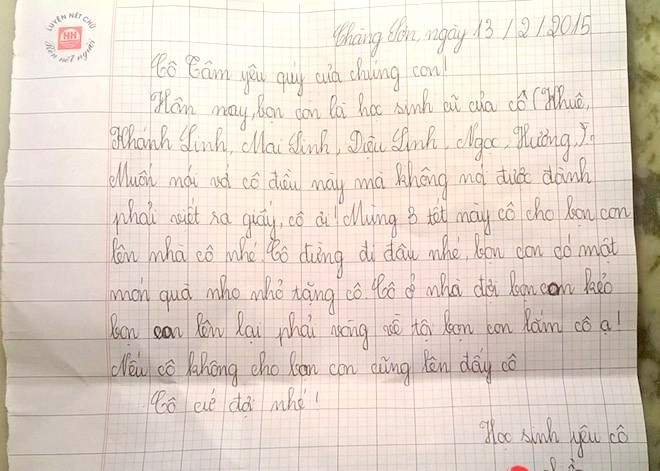 LUYỆN NÉT CHỮ
HH
Rèn nét người
Chàng Sơn, ngày 13/2/2015
Cô Tâm yêu quý của chúng con!
Hôm nay, bọn con là học sinh cũ của cô (Khuê,
Khánh Linh, Mai Linh, Diệu Linh, Ngọc, Hương,).
Muốn nói với cô điều này mà không nói được đành
phải viết ra giấy, cô ơi! Mùng 3 tết này cô cho bọn con
lên nhà cô nhé. Cô đừng đi đâu nhé, bọn con có một
món quà nho nhỏ tặng cô. Cô ở nhà đợi bọn con kẻo
bọn con lên lại phải vòng về tội bọn con lắm cô ạ!
Nếu cô không cho bọn con cũng lên đấy cô
Cô cứ đợi nhé!
Học sinh yêu cô